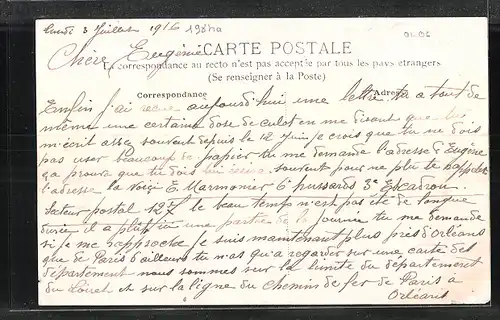 Lundi 3 Juillet 1916
Chère Eugénie
CARTE POSTALE
La correspondance au recto n'est pas acceptée par tous les pays étrangers
(Se renseigner à la Poste)
Correspondance
Adresse
Enfin j'ai recue aujourd'hui une lettre tu a tout de
même une certaine dose de culot en me disant que
m'écrit assez souvent depuis le 12 Juin je crois que tu ne dois
pas user beaucoup de papier tu me demande l'adresse d'Eugène
ça prouve que tu dois lui souvent pour ne plu te rappeler
l'adresse la Voiçi E. Marmonier 6e hussards 3e Escadron
Secteur postal 127 le beau temps n'est pas été de longue
durée il a plut une partie de la journée tu me demande
si je me rapproche je suis maintenant plus près d'orléans
que de Paris d'ailleurs tu n'as qu'a regarder sur une carte des
département nous sommes sur la limite du département
du Loiret et sur la ligne du chemin de fer de Paris à
Orléans